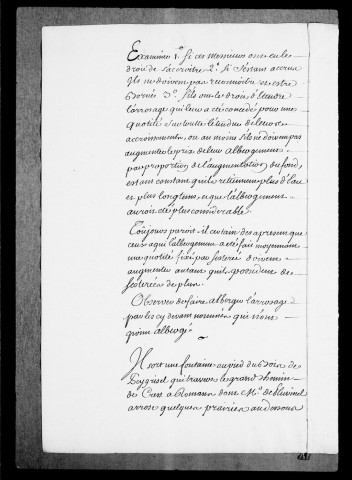 Examiner 1º Si ces messieurs ont eu le
droit de s'accroitre 2º Si s'étant accrus
Ils ne doivent pas reconnoitre et estre
bornés 3º S'ils ont le droit d'étendre
l'arrosage qui leur a eté concedé pour une
quotité sur toutte l'étendue de leurs
accroissements, ou au moins s'ils ne doivent pas
augmenter le prix de leur albergement
par proportion de l'augmentation du fond,
etant constant qu'ils retiennent plus d'eau
et plus longtems, et que l'albergement
auroit été plus considerable.
Toujours paroit-il certain des a present que
ceux a qui l'albergement a eté fait moyennant
une quotité fixé par sesterée doivent
augmenter autant qu'ils possedent de
sesterées de plus.
Observer de faire alberger l'arrosage
par les cy devant nommés qui n'ont
point albergé
Il sort une fontaine au pied du bois de
Peygrisel qui traverse le grand chemin
de Crest a Romans dont Mr. de
arrose quelques prairies au dessous